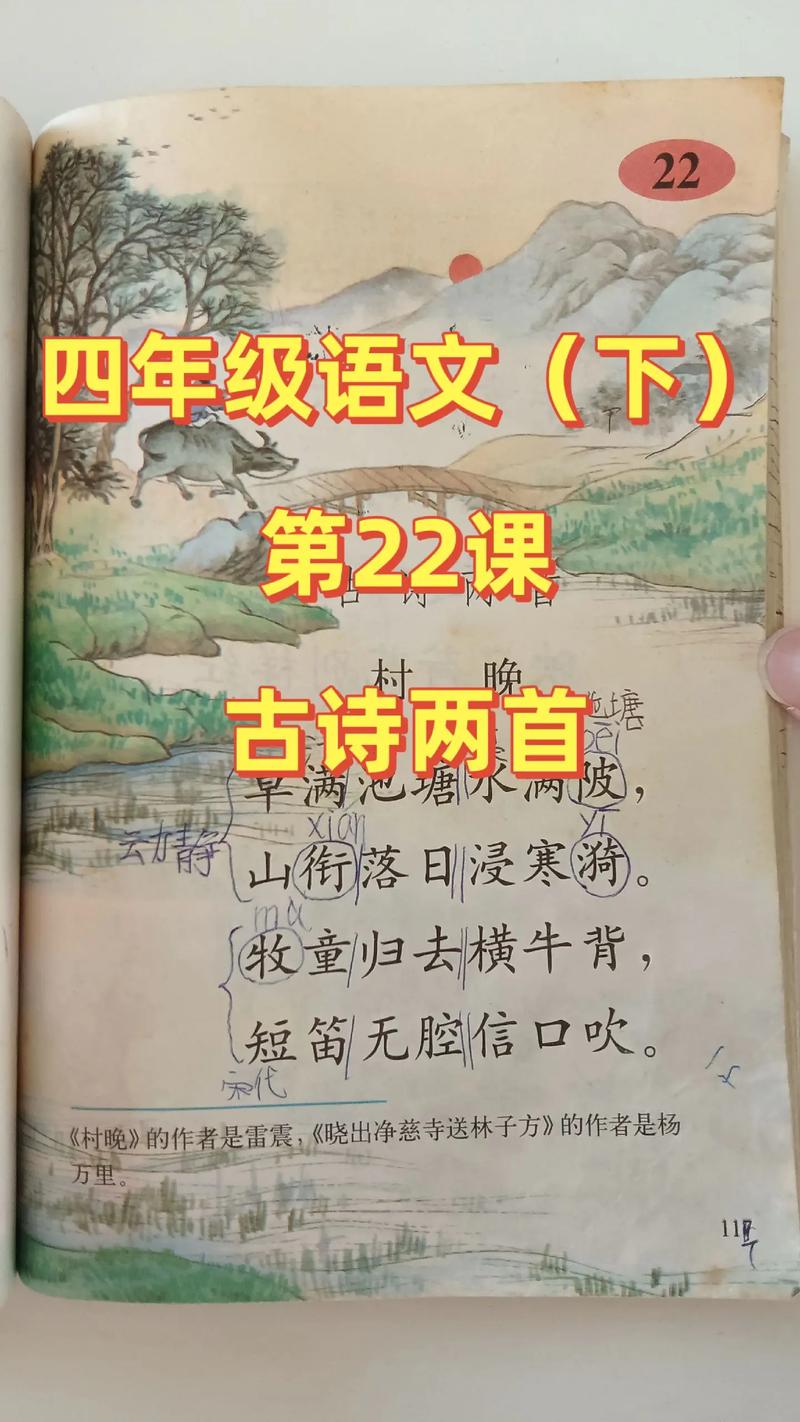 22
四年级语文（下）
第22课
古诗两首
古诗两首
村晚
池塘
bēi
草满池塘水满陂，
xián
yī
动静
山衔落日浸寒漪。
mù
牧童归去横牛背，
短笛无腔信口吹。
宋代
《村晚》的作者是雷震，《晓出净慈寺送林子方》的作者是杨
万里。